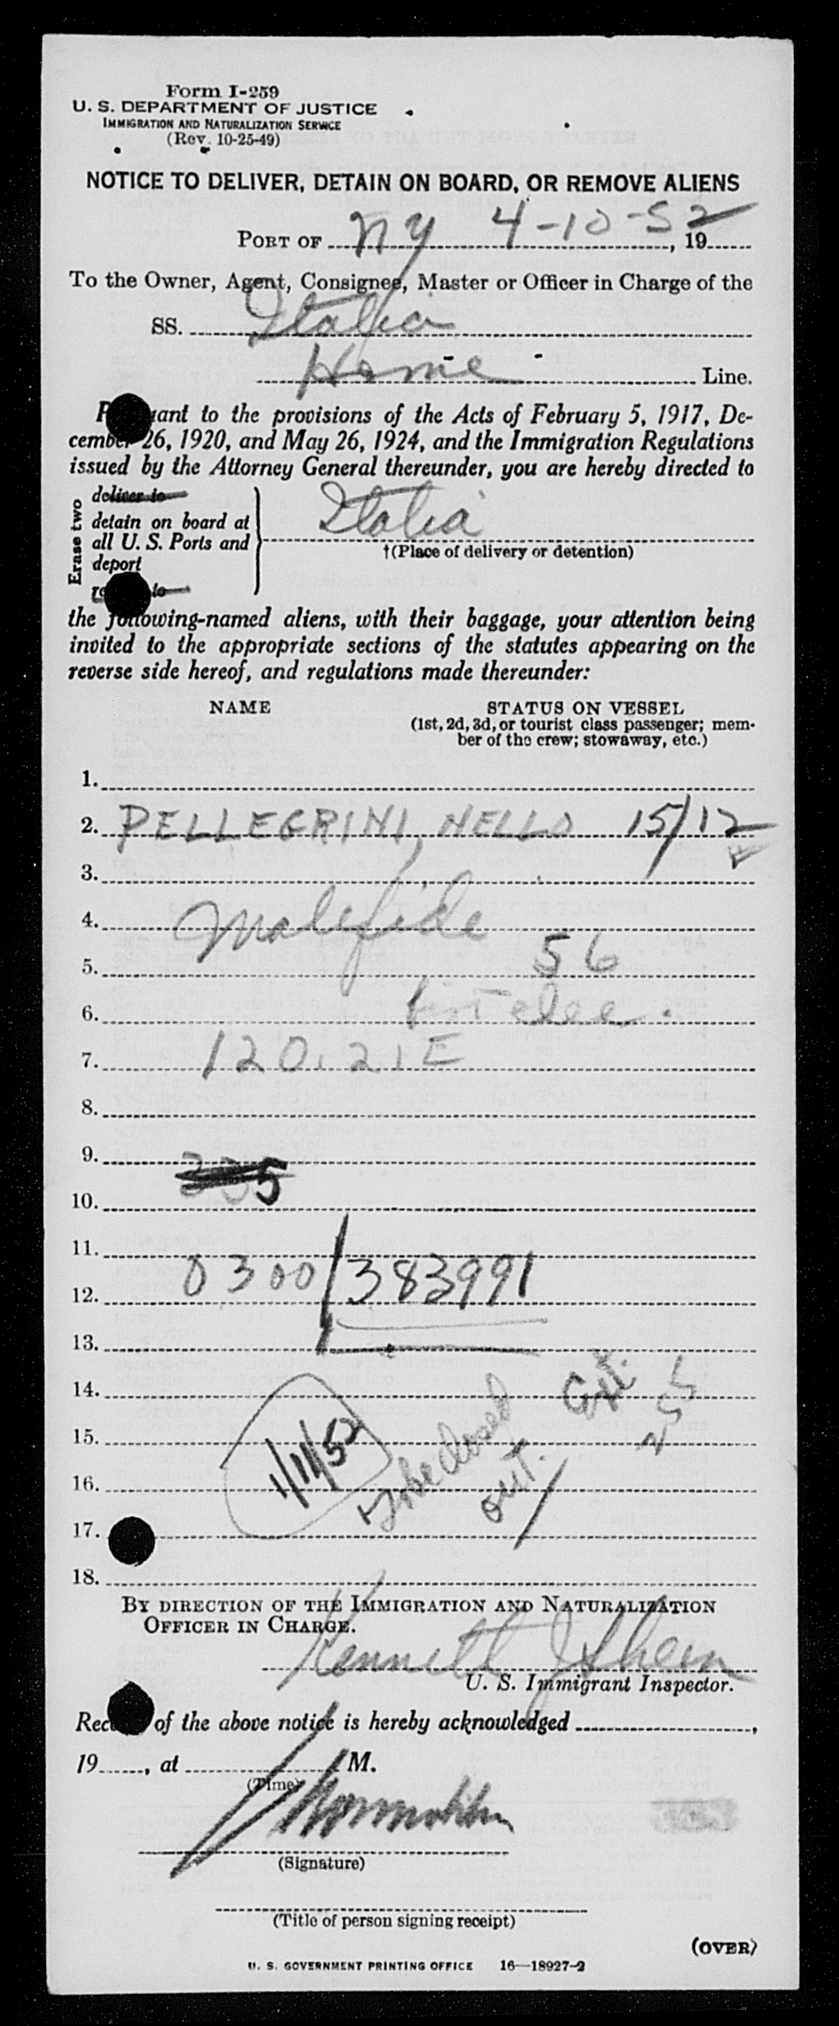 Form I-259
U. S. DEPARTMENT OF JUSTICE
IMMIGRATION AND NATURALIZATION SERVICE
(Rev. 10-25-49)
NOTICE TO DELIVER, DETAIN ON BOARD, OR REMOVE ALIENS
PORT OF NY 4-10-52, 19
To the Owner, Agent, Consignee, Master or Officer in Charge of the
SS. Italia
Home Line.
Pursuant to the provisions of the Acts of February 5, 1917, De-
cember 26, 1920, and May 26, 1924, and the Immigration Regulations
issued by the Attorney General thereunder, you are hereby directed to
Erase two
deliver to
detain on board at
all U. S. Ports and
deport
Italia
†(Place of delivery or detention)
the following-named aliens, with their baggage, your attention being
invited to the appropriate sections of the statutes appearing on the
reverse side hereof, and regulations made thereunder:
NAME STATUS ON VESSEL
(1st, 2d, 3d, or tourist class passenger; mem-
ber of the crew; stowaway, etc.)
1.
2. PELLEGRINI, NELLO 15/12
3.
4. Malefide
5. 56
6.
7. 120.21E
8.
9.
10.
11.
12. 0300/383991
13.
14.
15. 1/11/52 To be closed
16. out.
17.
18.
BY DIRECTION OF THE IMMIGRATION AND NATURALIZATION
OFFICER IN CHARGE.
Kenneth J
U. S. Immigrant Inspector.
Receipt of the above notice is hereby acknowledged ,
19 , at M.
(Time)
(Signature)
(Title of person signing receipt)
(OVER)
U. S. GOVERNMENT PRINTING OFFICE 16—18927-2